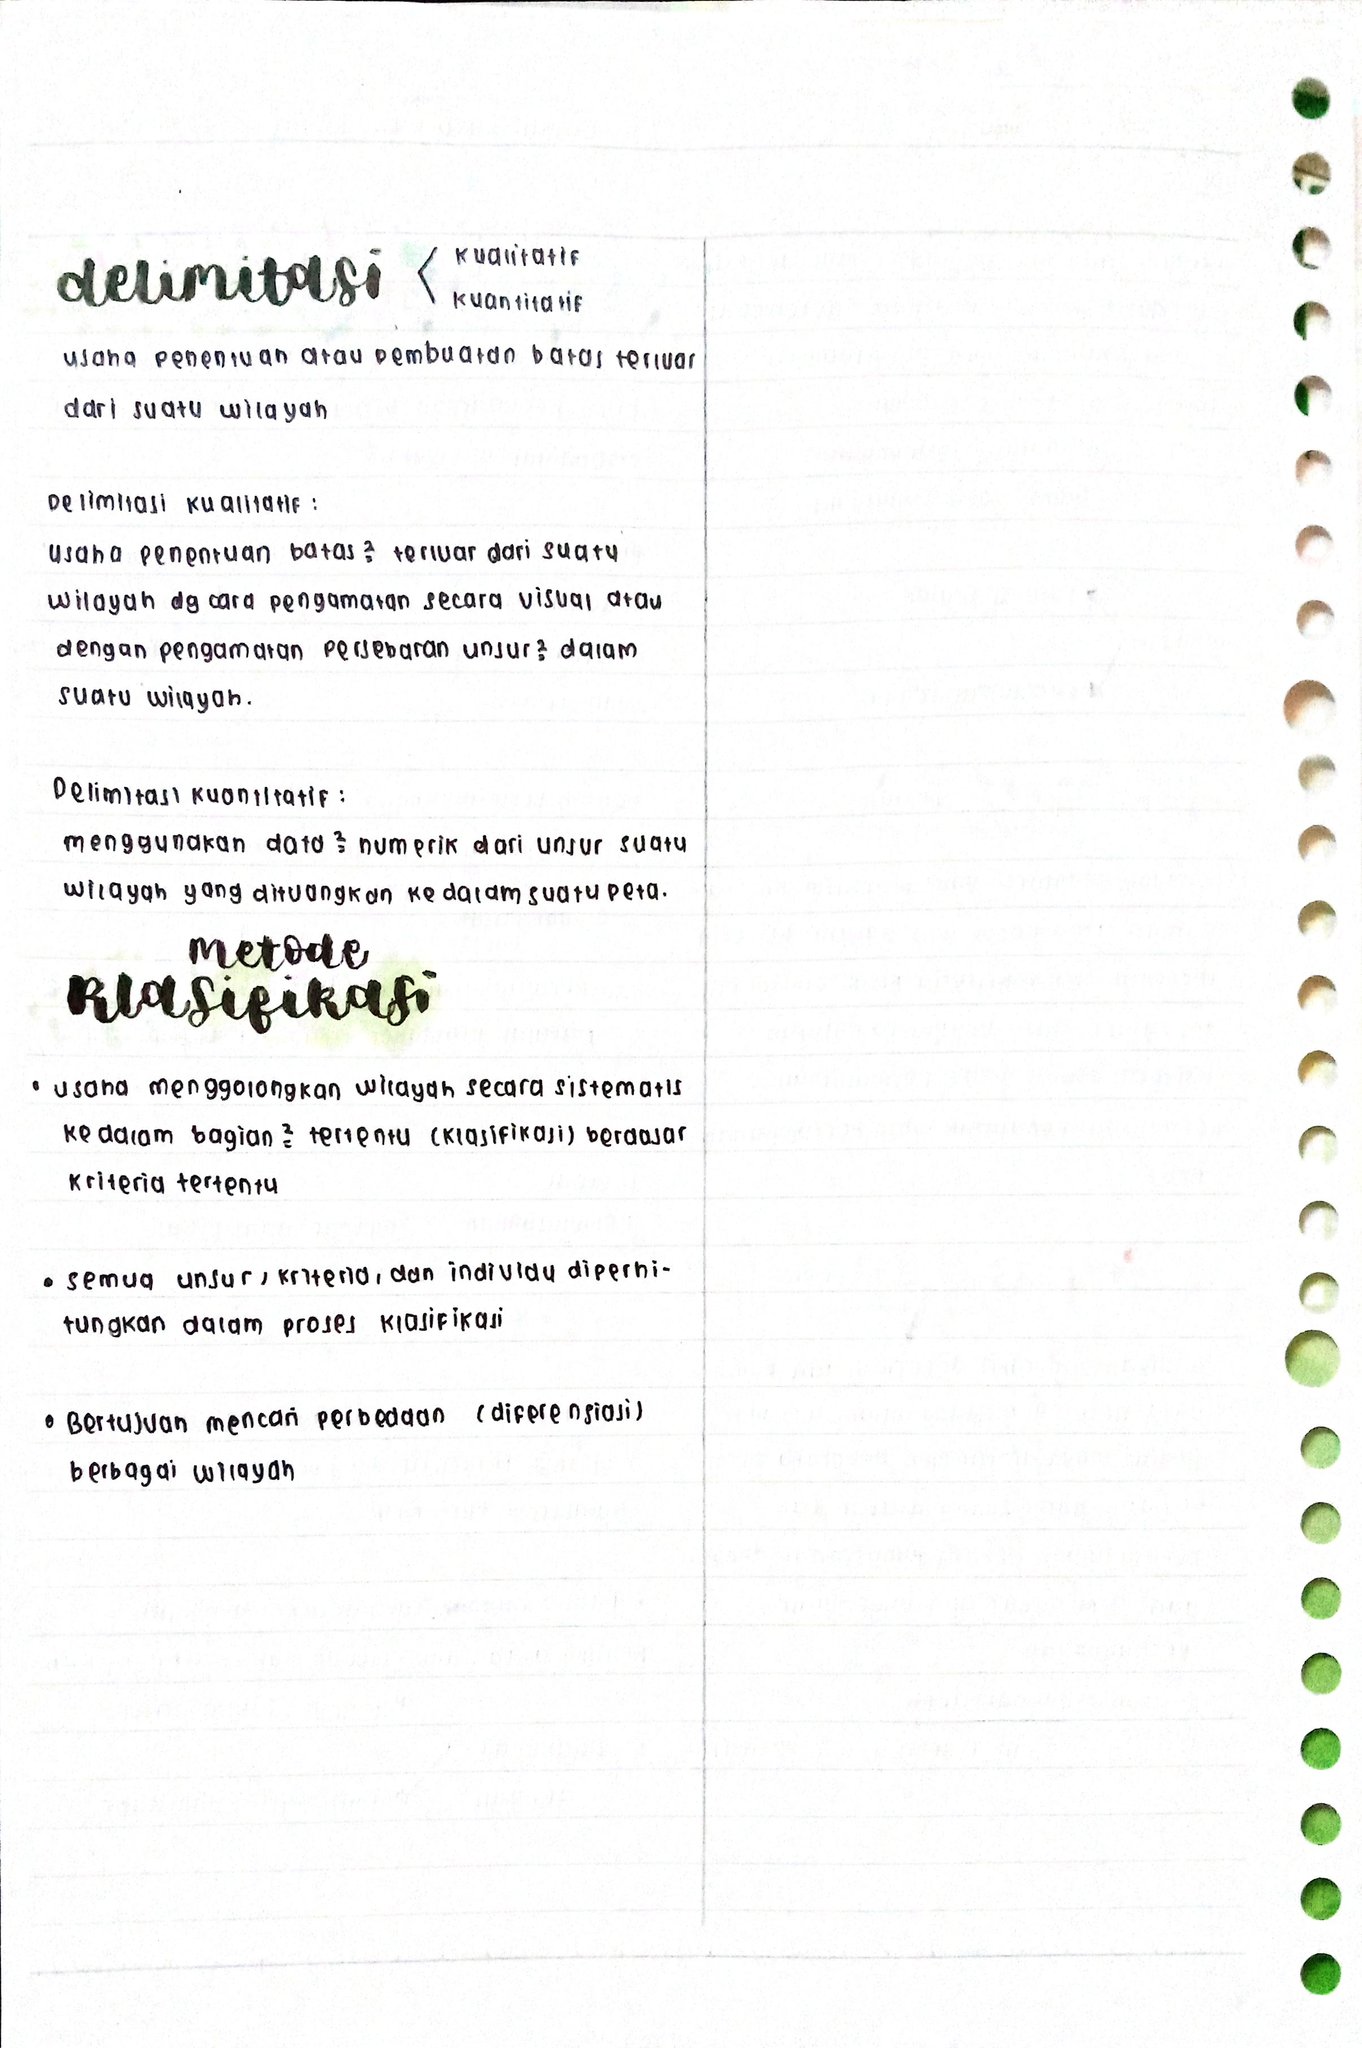 delimitasi < kualitatif
kuantitatif
usaha penentuan atau pembuatan batas terluar
dari suatu wilayah
Delimitasi kualitatif :
usaha penentuan batas² terluar dari suatu
wilayah dg cara pengamatan secara visual atau
dengan pengamatan persebaran unsur² dalam
suatu wilayah.
Delimitasi kuantitatif :
menggunakan data² numerik dari unsur suatu
wilayah yang dituangkan ke dalam suatu peta.
Metode
Klasifikasi
• usaha menggolongkan wilayah secara sistematis
ke dalam bagian² tertentu (klasifikasi) berdasar
kriteria tertentu
• semua unsur, kriteria, dan individu diperhi-
tungkan dalam proses klasifikasi
• Bertujuan mencari perbedaan (diferensiasi)
berbagai wilayah